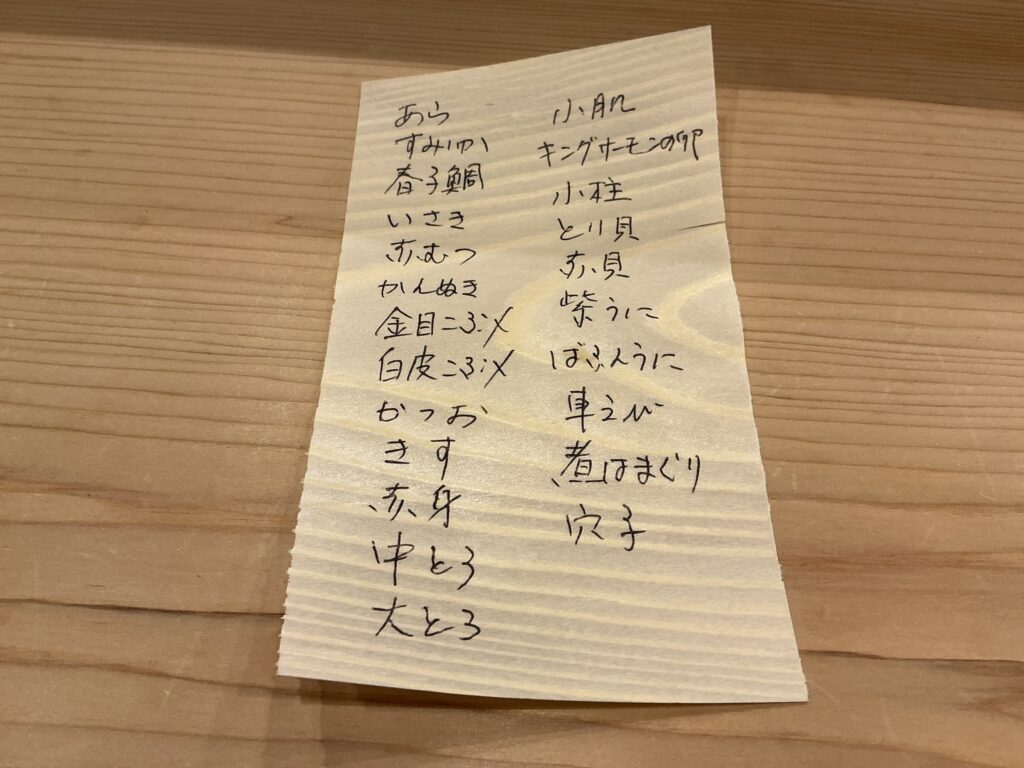 あら
すみいか
春子鯛
いさき
赤むつ
かんぬき
金目こぶ〆
白皮こぶ〆
かつお
きす
赤身
中とろ
大とろ
小肌
キングサーモンの卵
小柱
とり貝
赤貝
紫うに
ばふんうに
車えび
煮はまぐり
穴子